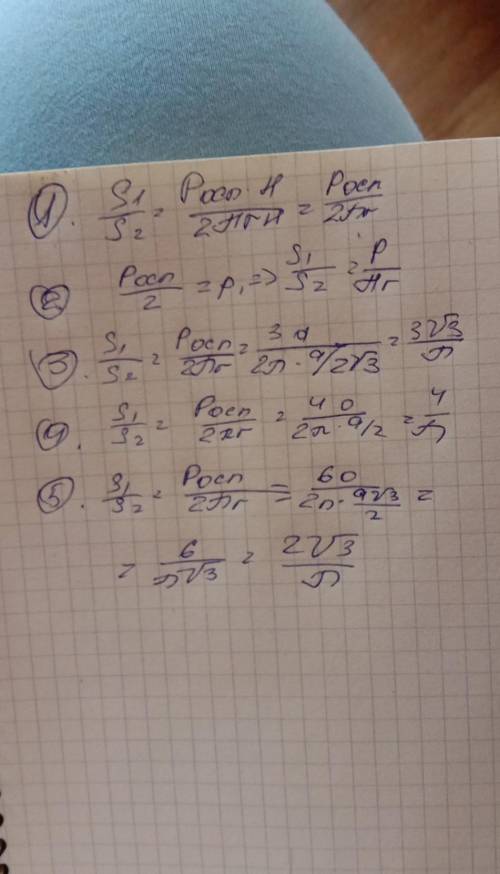 1. S1/S2 = Pосн·H/2πrH = Pосн/2πr
2 Pосн/2 = p, => S1/S2 = P/πr
3. S1/S2 = Pосн/2πr = 3a/2π·a/2√3 = 3√3/π
4. S1/S2 = Pосн/2πr = 4a/2π·a/2 = 4/π
5. S1/S2 = Pосн/2πr = 6a/2π·a√3/2 =
= 6/π√3 = 2√3/π